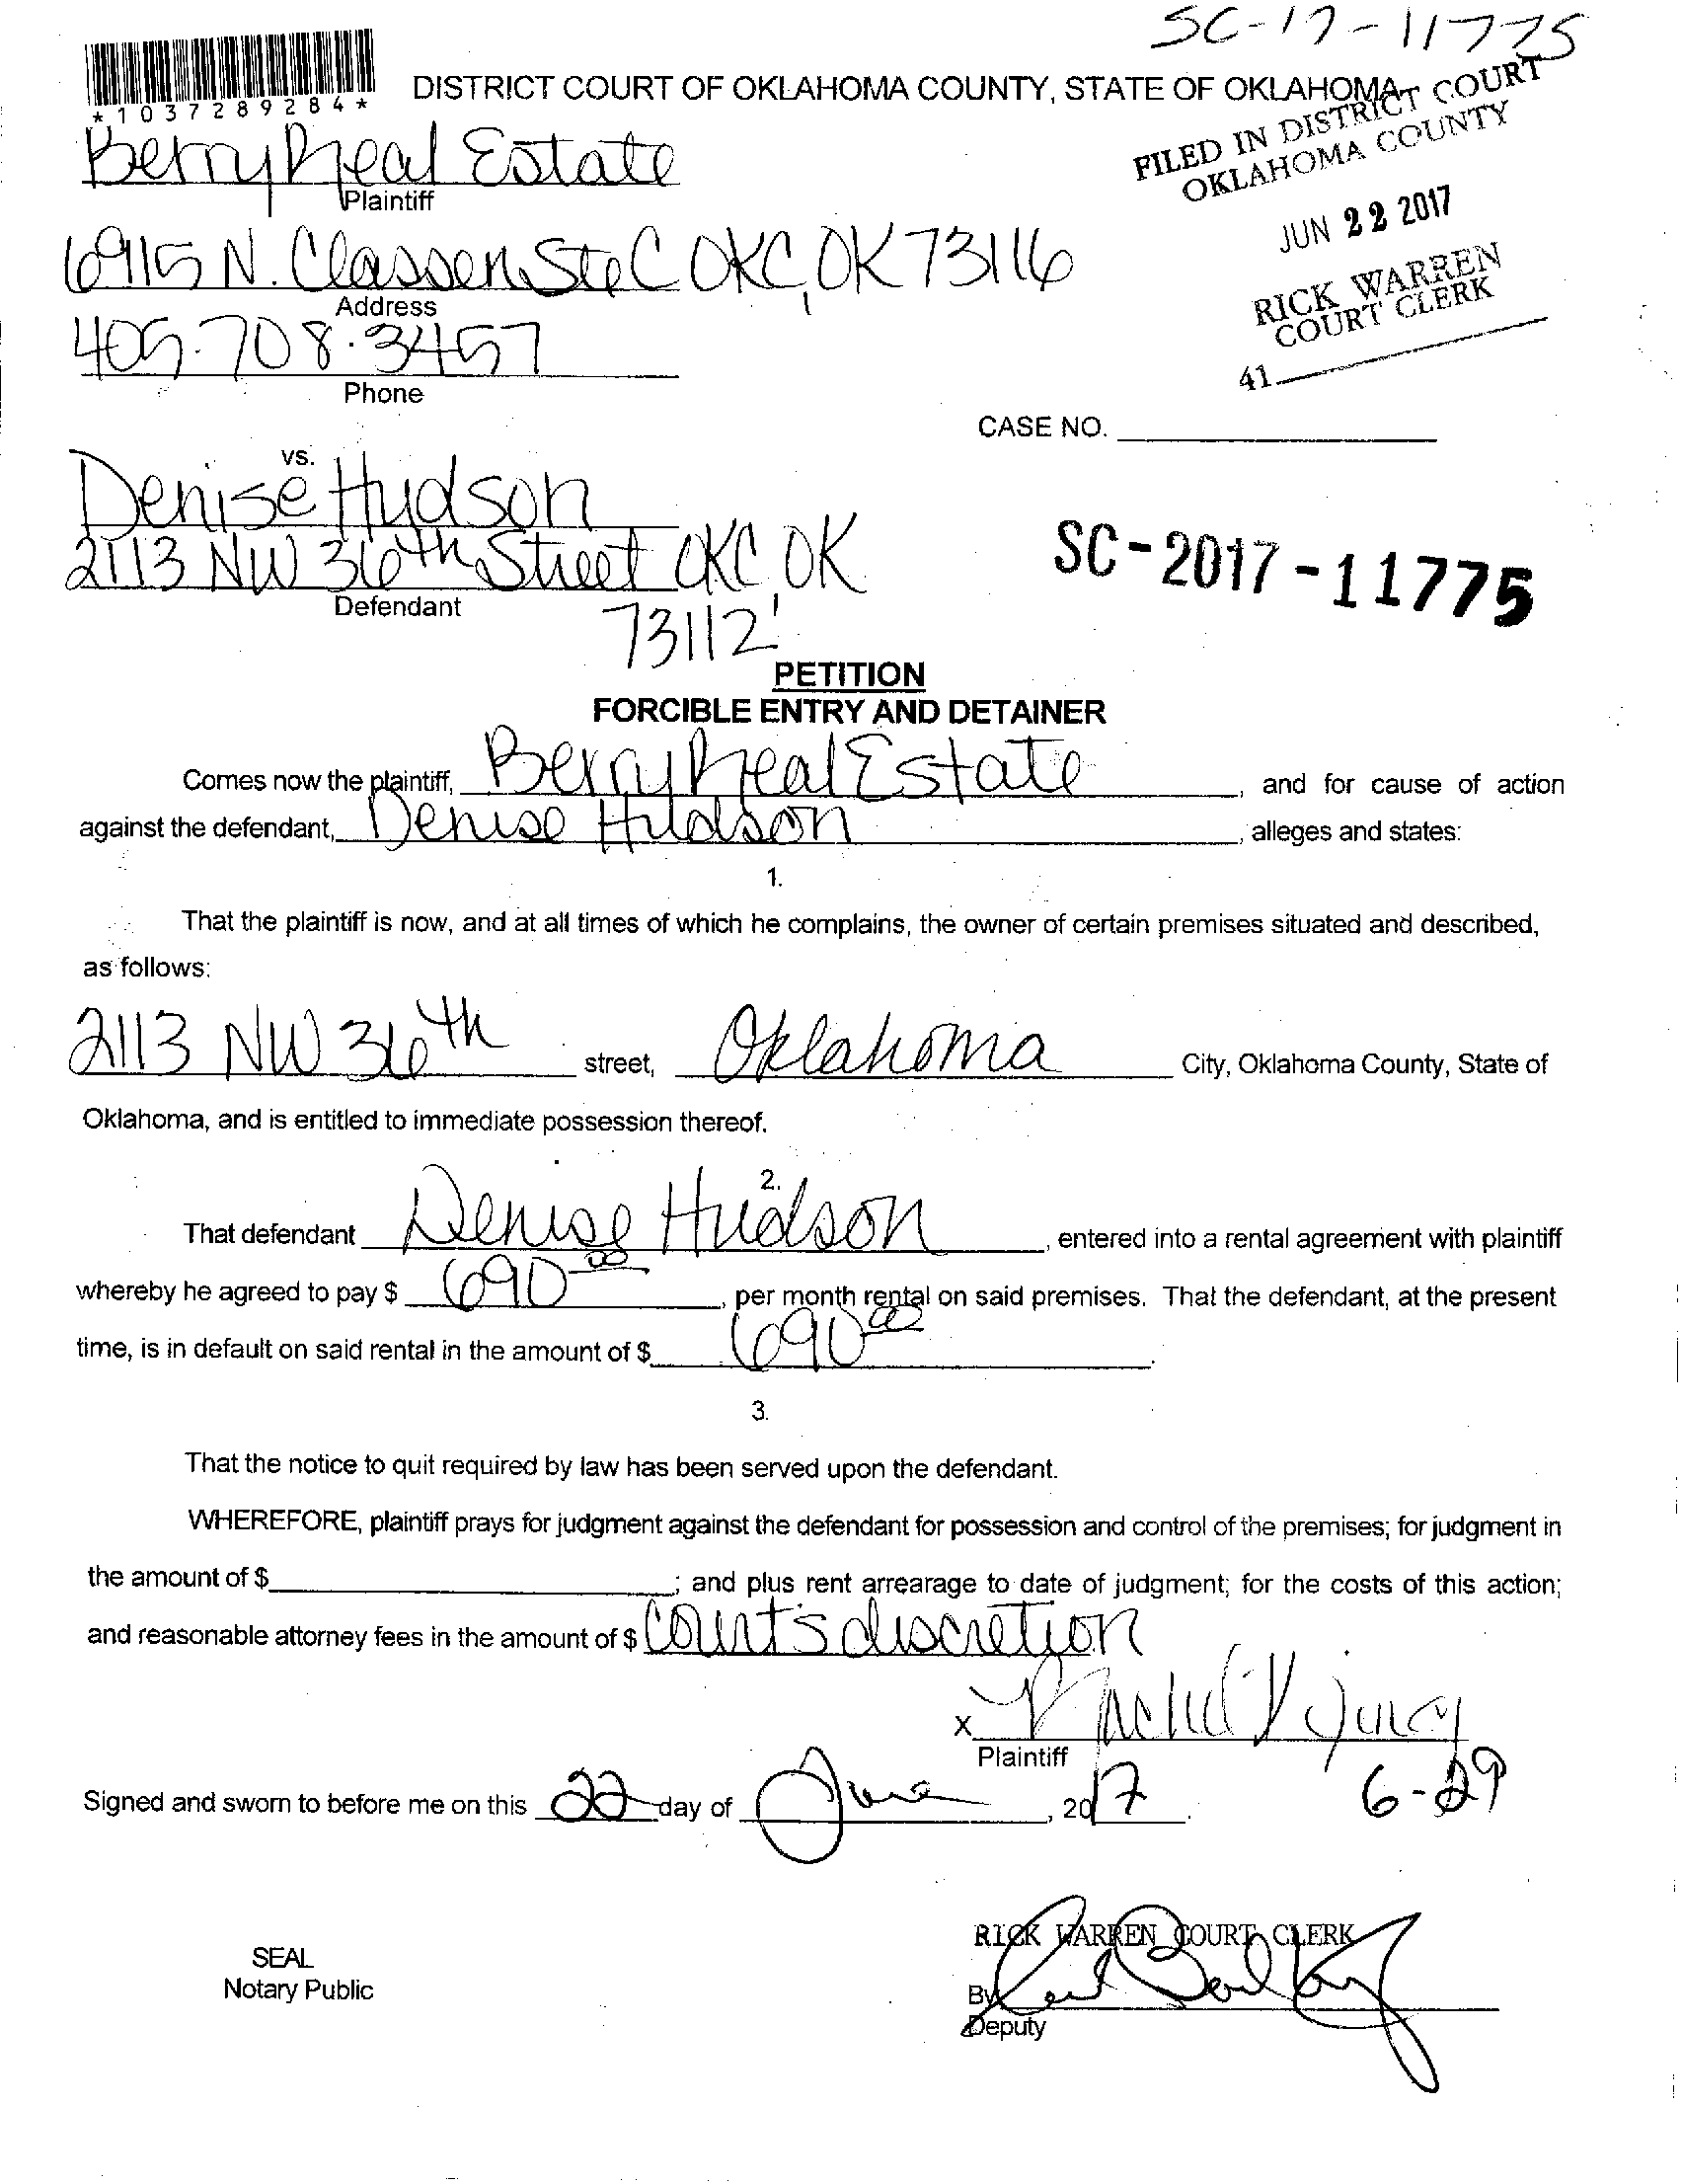 SC-17-11775
*1037289284*
DISTRICT COURT OF OKLAHOMA COUNTY, STATE OF OKLAHOMA
FILED IN DISTRICT COURT
OKLAHOMA COUNTY
JUN 22 2017
RICK WARREN
COURT CLERK
41
Berry Real Estate
Plaintiff
6915 N. Classen Ste C OKC, OK 73116
Address
405.708.3457
Phone
CASE NO.
vs.
Denise Hudson
2113 NW 36th Street OKC, OK
73112
Defendant
SC-2017-11775
PETITION
FORCIBLE ENTRY AND DETAINER
Comes now the plaintiff, Berry Real Estate, and for cause of action
against the defendant, Denise Hudson, alleges and states:
1.
That the plaintiff is now, and at all times of which he complains, the owner of certain premises situated and described,
as follows:
2113 NW 36th street, Oklahoma City, Oklahoma County, State of
Oklahoma, and is entitled to immediate possession thereof.
2.
That defendant Denise Hudson, entered into a rental agreement with plaintiff
whereby he agreed to pay $ 690 00, per month rental on said premises. That the defendant, at the present
time, is in default on said rental in the amount of $ 690 00.
3.
That the notice to quit required by law has been served upon the defendant.
WHEREFORE, plaintiff prays for judgment against the defendant for possession and control of the premises; for judgment in
the amount of $ ; and plus rent arrearage to date of judgment; for the costs of this action;
and reasonable attorney fees in the amount of $ Court's discretion
X
Plaintiff
Signed and sworn to before me on this 22 day of June, 2017.
6-29
RICK WARREN COURT CLERK
SEAL
Notary Public
By
Deputy